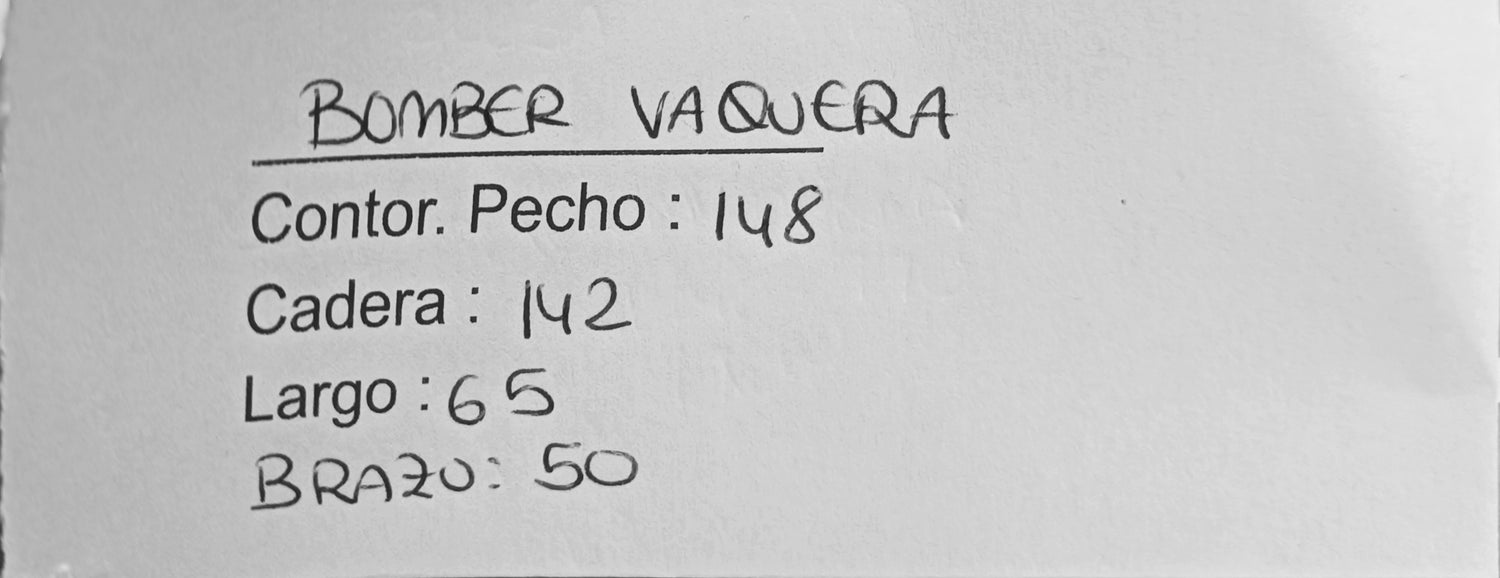 BOMBER VAQUERA
Contor. Pecho : 148
Cadera : 142
Largo : 65
BRAZO: 50